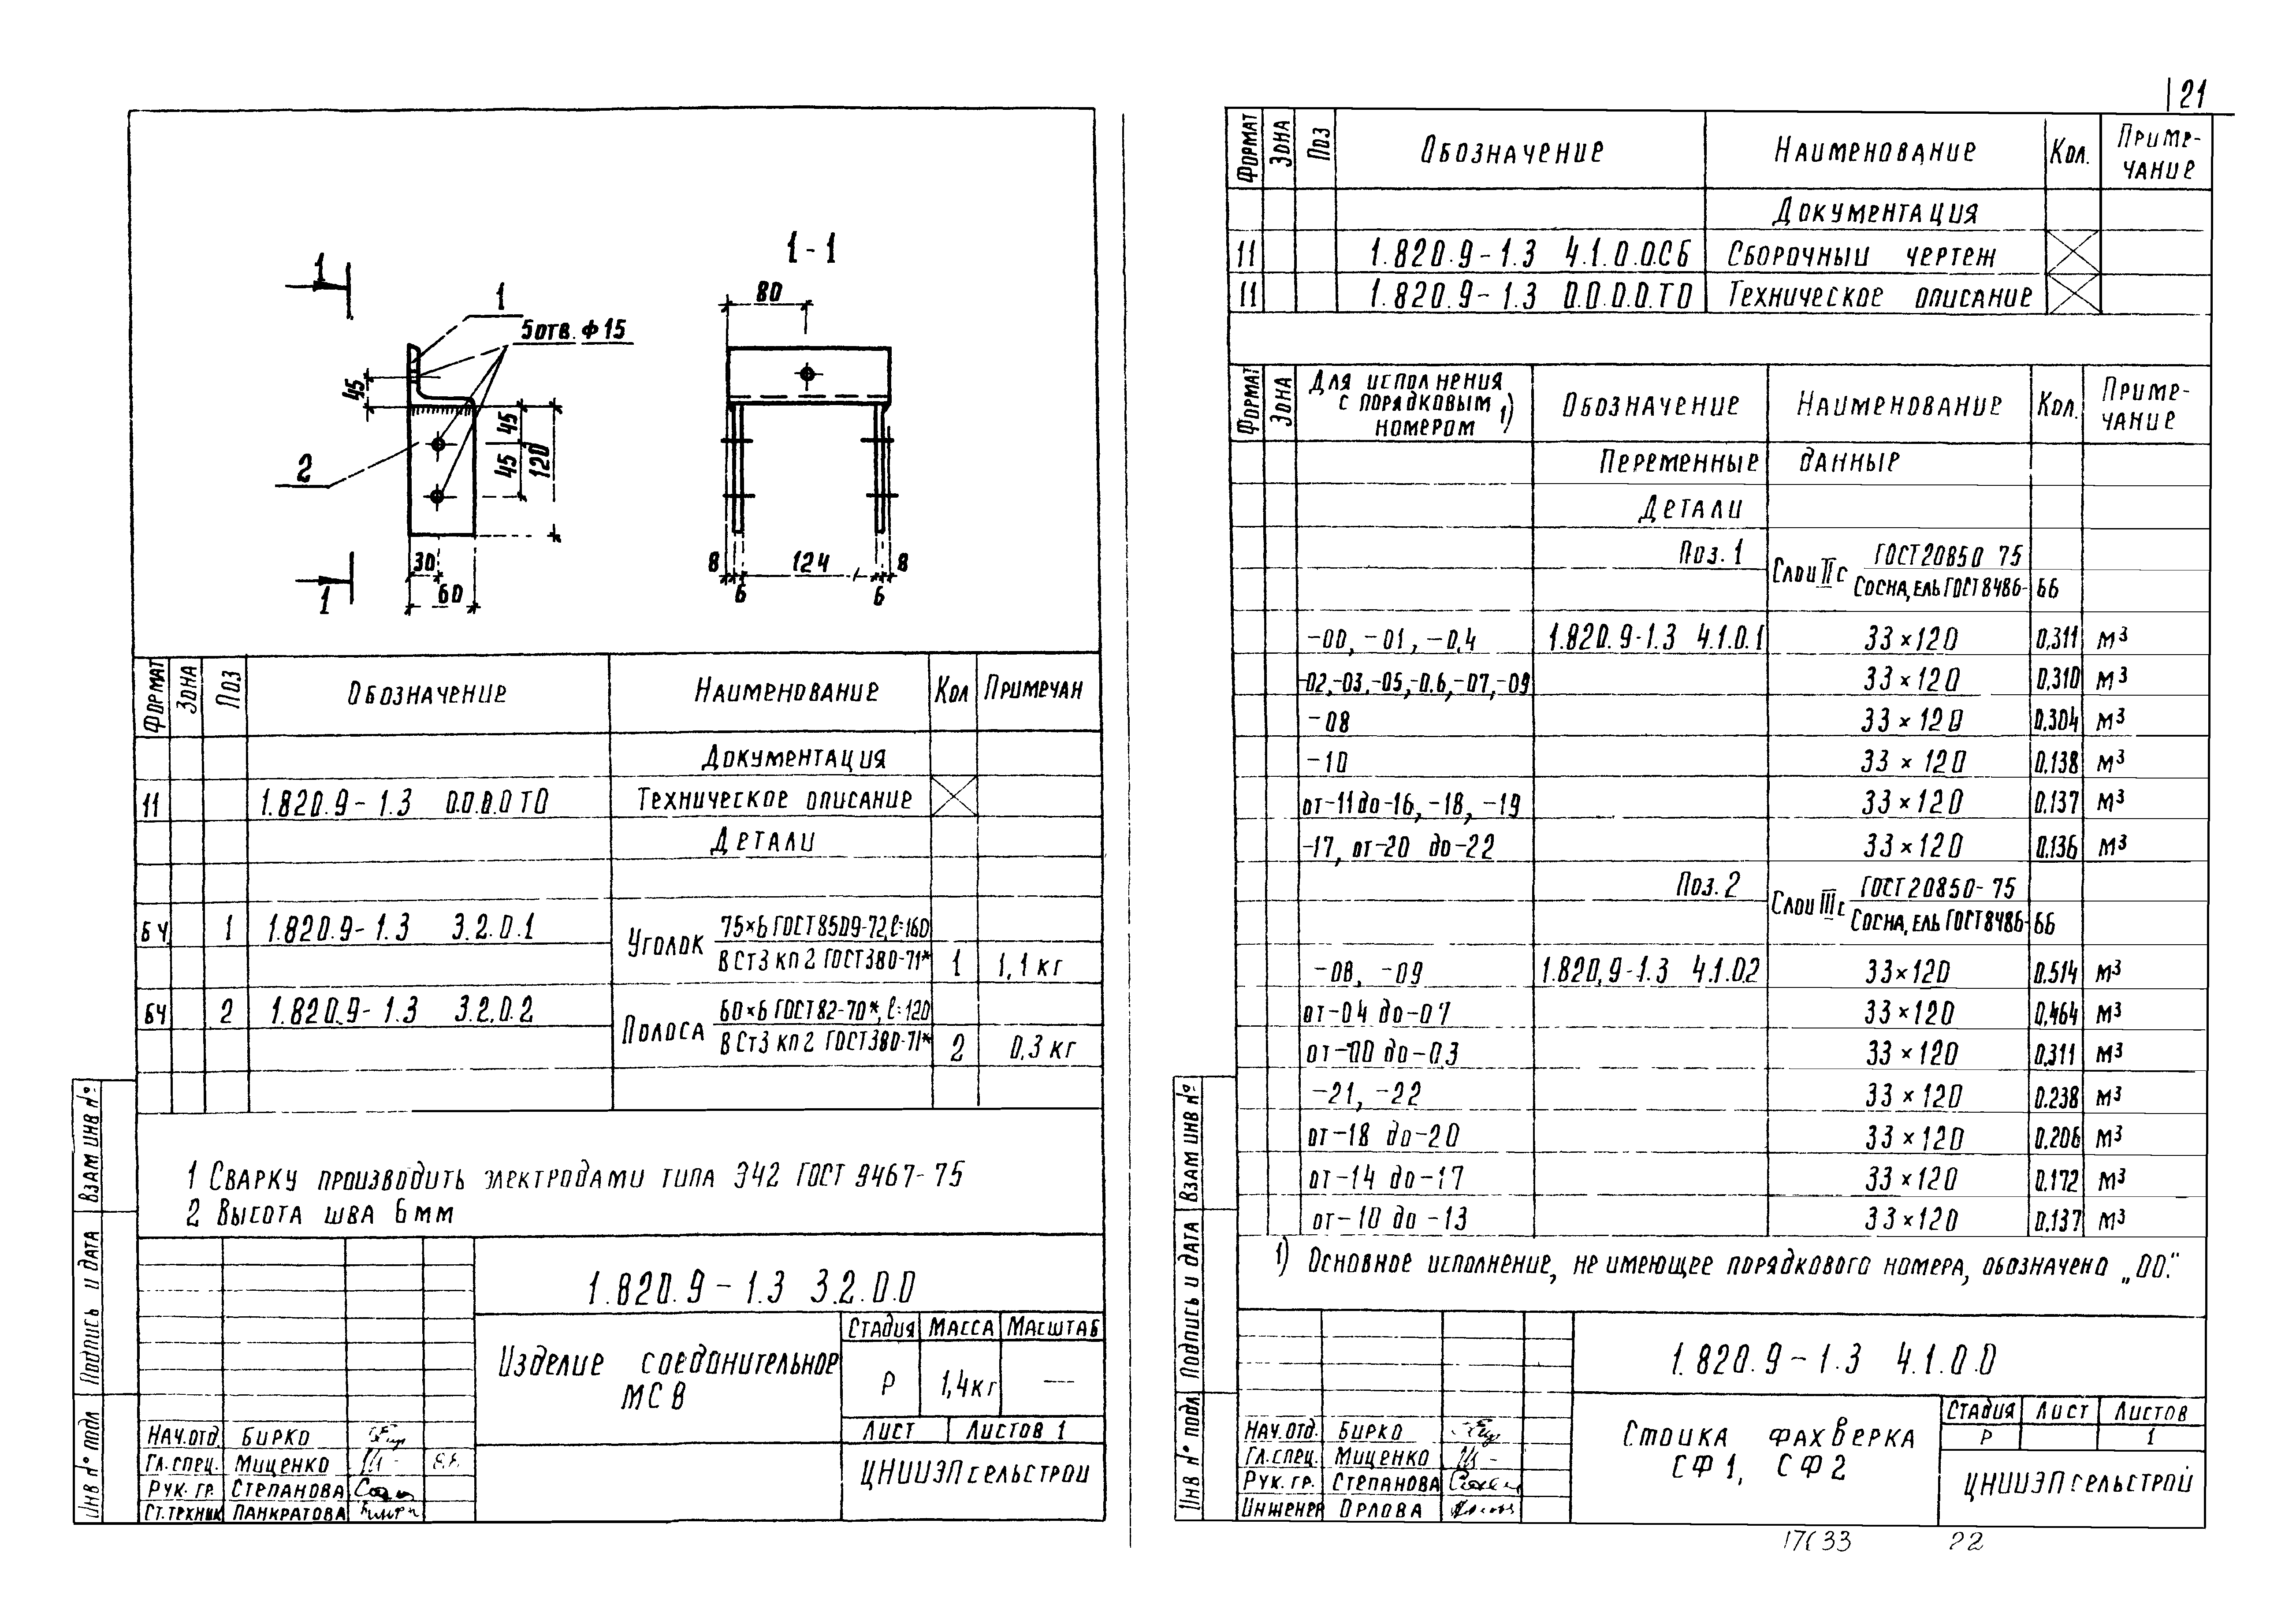 21
1-1
1
1
5отв. ф15
80
45
45
45
120
2
30
60
1
8
124
8
6
6
Формат Зона Поз Обозначение Наименование Кол Примечан
Документация
11 1.820.9-1.3 0.0.0.0 ТО Техническое описание
Детали
БЧ 1 1.820.9-1.3 3.2.0.1 Уголок 75×6 ГОСТ 8509-72, ℓ=160
В Ст3 кп2 ГОСТ 380-71* 1 1,1 кг
БЧ 2 1.820.9-1.3 3.2.0.2 Полоса 60×6 ГОСТ 82-70*, ℓ=120
В Ст3 кп2 ГОСТ 380-71* 2 0,3 кг
1 Сварку производить электродами типа Э42 ГОСТ 9467-75
2 Высота шва 6мм
1.820.9-1.3 3.2.0.0
Изделие соединительное
МС В
Стадия Масса Масштаб
Р 1,4кг —
Лист Листов 1
ЦНИИЭПсельстрой
Нач.отд. Бирко
Гл.спец. Миценко
Рук. гр. Степанова
Ст.техник Панкратова
Взам инв №
Подпись и дата
Инв № подл
Формат Зона Поз Обозначение Наименование Кол. Приме-
чание
Документация
11 1.820.9-1.3 4.1.0.0.СБ Сборочный чертеж
11 1.820.9-1.3 0.0.0.0.ТО Техническое описание
Формат Зона Для исполнения
с порядковым 1)
номером
Обозначение Наименование Кол. Приме-
чание
Переменные данные
Детали
Поз. 1 Слои II с ГОСТ 20850 75
Сосна, ель ГОСТ 8486-66
-00, -01, -0,4 1.820.9-1.3 4.1.0.1 33×120 0,311 м³
-02,-03,-05,-0.6,-07,-09 33×120 0,310 м³
-08 33×120 0.304 м³
-10 33×120 0.138 м³
от-11 до-16, -18, -19 33×120 0.137 м³
-17, от-20 до-22 33×120 0.136 м³
Поз. 2 Слои III с ГОСТ 20850-75
Сосна, ель ГОСТ 8486-66
-08, -09 1.820,9-1.3 4.1.0.2 33×120 0.514 м³
от-04 до-07 33×120 0,464 м³
от-00 до-0,3 33×120 0,311 м³
-21, -22 33×120 0.238 м³
от-18 до-20 33×120 0.206 м³
от-14 до-17 33×120 0.172 м³
от-10 до-13 33×120 0.137 м³
1) Основное исполнение, не имеющее порядкового номера, обозначено „00."
1.820.9-1.3 4.1.0.0
Стойка фахверка
СФ1, СФ2
Стадия Лист Листов
Р 1
ЦНИИЭПсельстрой
Нач.отд. Бирко
Гл.спец. Миценко
Рук. гр. Степанова
Инженер Орлова
Взам инв №
Подпись и дата
Инв № подл
22